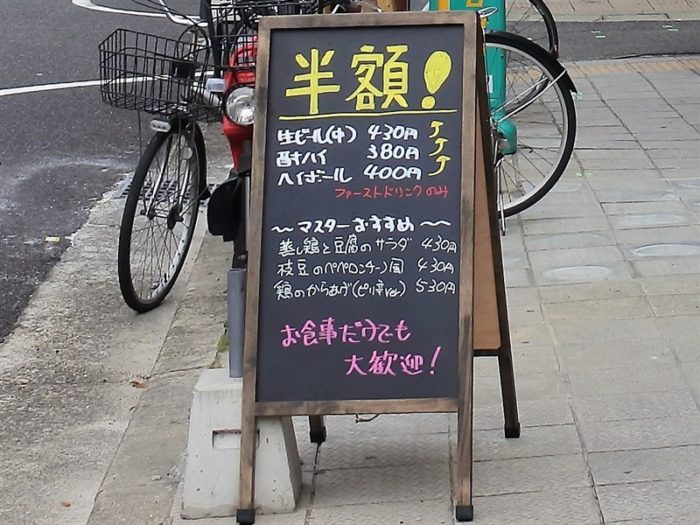 半額!
生ビール(中) 430円
酎ハイ 380円
ハイボール 400円
ファーストドリンクのみ
〜マスターおすすめ〜
蒸し鶏と豆腐のサラダ 430円
枝豆のペペロンチーノ風 430円
鶏のからあげ(ピリ辛ver.) 530円
お食事だけでも
大歓迎!